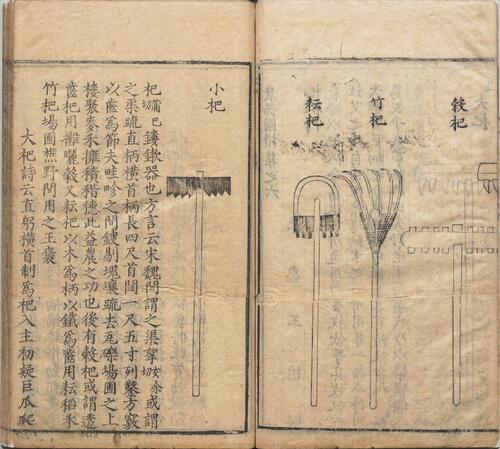 穀杷
竹杷
耘杷
小杷
杷鏤鍬器也方言云宋魏間謂之渠挐或謂
之渠疏直柄橫首柄長四尺首闊一尺五寸列鑿方竅
以齒為節夫畦畛之間鎪剔塊壤疏去瓦礫場圃之上
耬聚麥禾擁積稭穗此益農之功也後有穀杷或謂透
齒杷用攤曬穀又耘杷以木為柄以鐵為齒用耘稻禾
竹杷場圃樵野間用之王褒
大杷詩云直躬橫首制為杷入土初疑巨爪爬